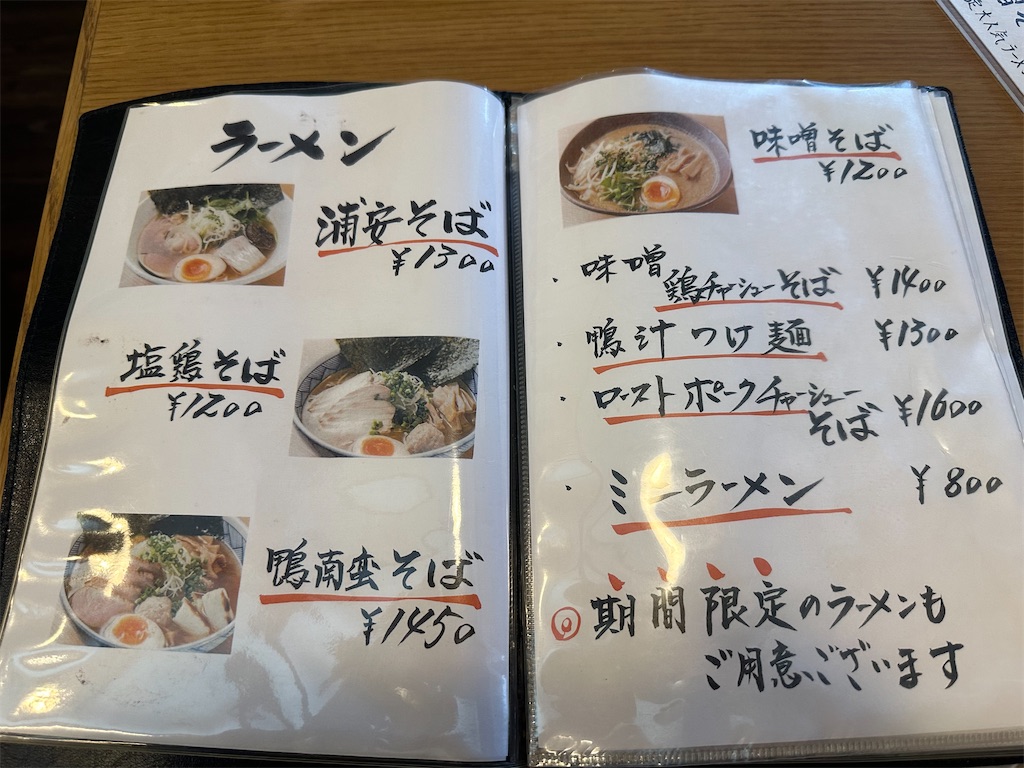 ラーメン
浦安そば
¥1300
塩鶏そば
¥1200
鴨南蛮そば
¥1450
味噌そば
¥1200
・味噌
鶏チャーシューそば ¥1400
・鴨汁つけ麺 ¥1300
・ローストポークチャーシュー
そば ¥1600
・ミニラーメン ¥800
◎期間限定のラーメンも
ご用意ございます